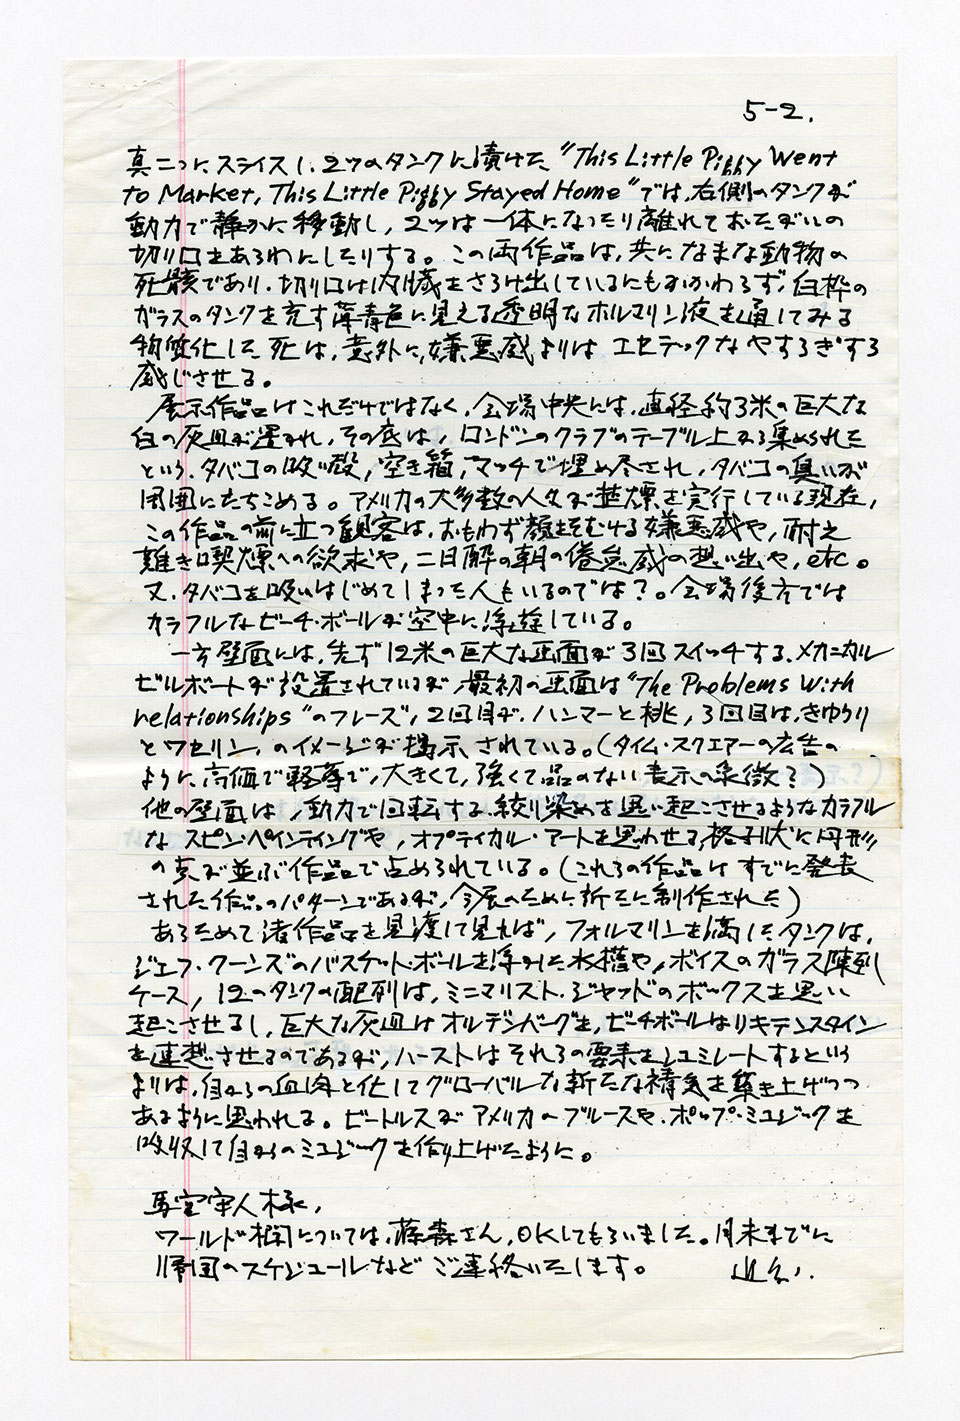 5-2.
真二つにスライスし、2ツのタンクに漬けた "This Little Piggy Went
to Market, This Little Piggy Stayed Home" では、右側のタンクが
動力で静かに移動し、2ツは一体になったり離れておたがいの
切り口をあらわにしたりする。この両作品は、共になまな動物の
死骸であり、切り口は内臓をさらけ出しているにもかかわらず、白枠の
ガラスのタンクを充す薄青色に見える透明なホルマリン液を通してみる
物質化した死は、意外に、嫌悪感よりは エセテックなやすらぎすら
感じさせる。
展示作品はこれだけではなく、会場中央には、直径約3米の巨大な
白の灰皿が置かれ、その底は、ロンドンのクラブのテーブル上から集められた
という、タバコの吸い殻、空き箱、マッチで埋め尽され、タバコの臭いが
周囲にたちこめる。アメリカの大多数の人々が禁煙を実行している現在、
この作品の前に立つ観客は、おもわず顔をそむける嫌悪感や、耐え
難き喫煙への欲求や、二日酔の朝の倦怠感の想い出や、etc。
又、タバコを吸いはじめてしまった人もいるのでは？。会場後方では
カラフルなビーチ・ボールが空中に浮遊している。
一方壁面には、先ず12米の巨大な画面が3回スイッチする、メカニカル
ビルボートが設置されているが、最初の画面は "The Problems With
relationships" のフレーズ、2回目が、ハンマーと桃、3回目は、きゅうり
とワセリン、のイメージが掲示されている。(タイム・スクエアーの広告の
ように、高価で軽薄で、大きくて、強くて品のない表示の象徴？)
他の壁面は、動力で回転する、絞り染めを思い起こさせるようなカラフル
なスピン・ペインティングや、オプティカル・アートを思わせる、格子状に円形
の点が並ぶ作品で占められている。(これらの作品はすでに発表
された作品のパターンであるが、今展のために新たに制作された)
あらためて諸作品を見渡して見れば、フォルマリンを満したタンクは、
ジェフ・クーンズのバスケット・ボールを浮かした水槽や、ボイスのガラス陳列
ケース、12のタンクの配列は、ミニマリスト・ジャッドのボックスを思い
起こさせるし、巨大な灰皿はオルデンバーグを、ビーチボールはリキテンスタイン
を連想させるのであるが、ハーストはそれらの要素をシュミレートするという
よりは、自からの血肉と化してグローバルな新たな精気を築き上げつつ
あるように思われる。ビートルズがアメリカのブルースや、ポップ・ミュジックを
吸収して自からのミュジックを作り上げたように。
馬宮宙人様、
ワールド欄については、藤森さん、OKしてもらいました。月末までに
帰国のスケジュールなどご連絡いたします。